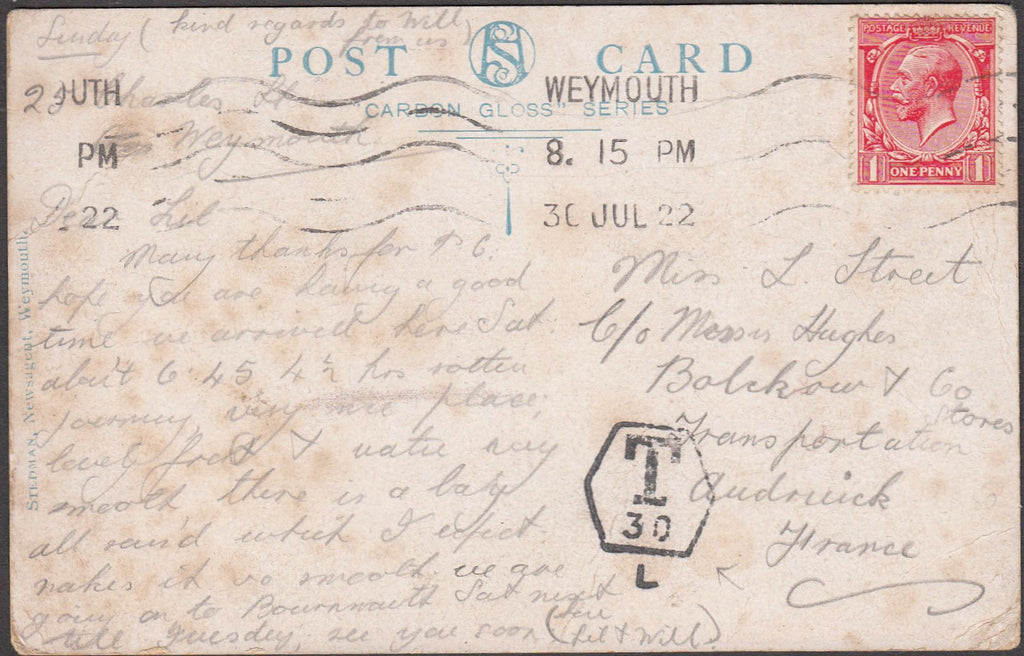 Sunday (kind regards to Will
from us)
POST CARD
"CARBON GLOSS" SERIES
POSTAGE REVENUE
1 ONE PENNY 1
UTH
PM
22
WEYMOUTH
8. 15 PM
30 JUL 22
29 Charles St
Weymouth.
Dear Lil
Many thanks for P.C.
hope you are having a good
time we arrived here Sat.
about 6.45 4½ hrs rotten
journey, very nice place,
lovely front & water very
smooth there is a
all round which I expect
makes it so smooth. we are
going on to Bournmouth Sat next
till Tuesday, see you soon
(Lil & Will)
Miss L. Street
C/o Messrs Hughes
Bolckow & Co
Stores
Transportation
Audruick
France
T
30
L
STEDMAN, Newsagent, Weymouth.